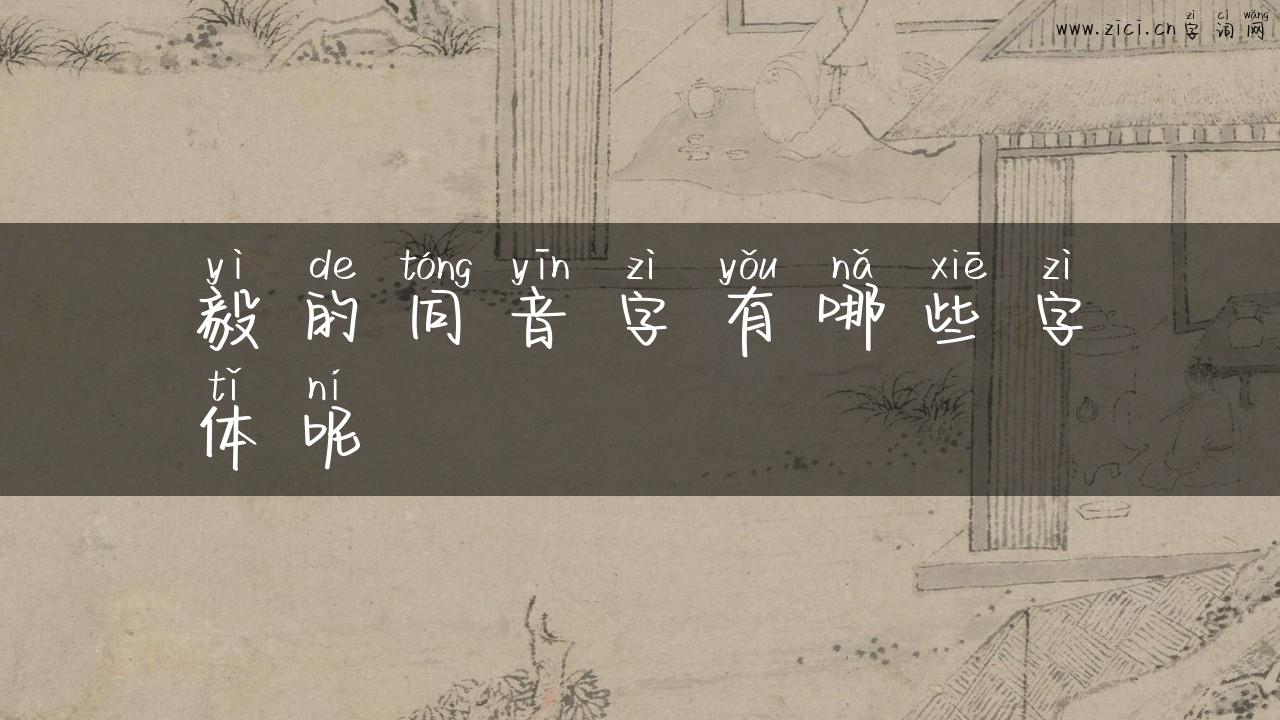 zì cí wǎng
www.zici.cn 字 词 网
yì de tóng yīn zì yǒu nǎ xiē zì
毅 的 同 音 字 有 哪 些 字
tǐ ní
体 呢